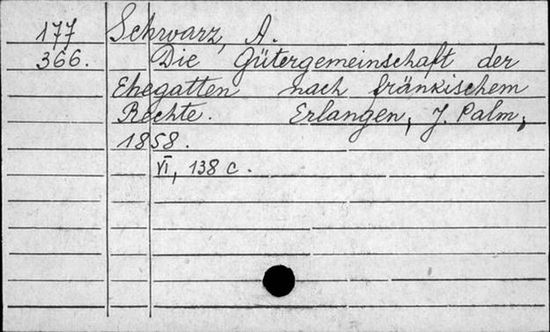 177 Schwarz, A.
366. Die Gütergemeinschaft der
Ehegatten nach fränkischem
Rechte. Erlangen, J. Palm,
1858.
VI, 138 c.